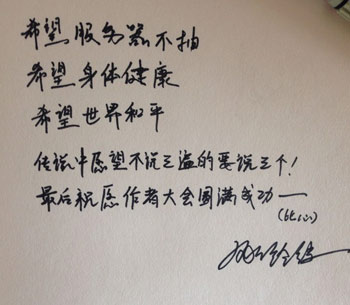 希望服务器不抽
希望身体健康
希望世界和平
传说中愿望不说三遍的要说三个！
最后祝愿作者大会圆满成功——
(比心)